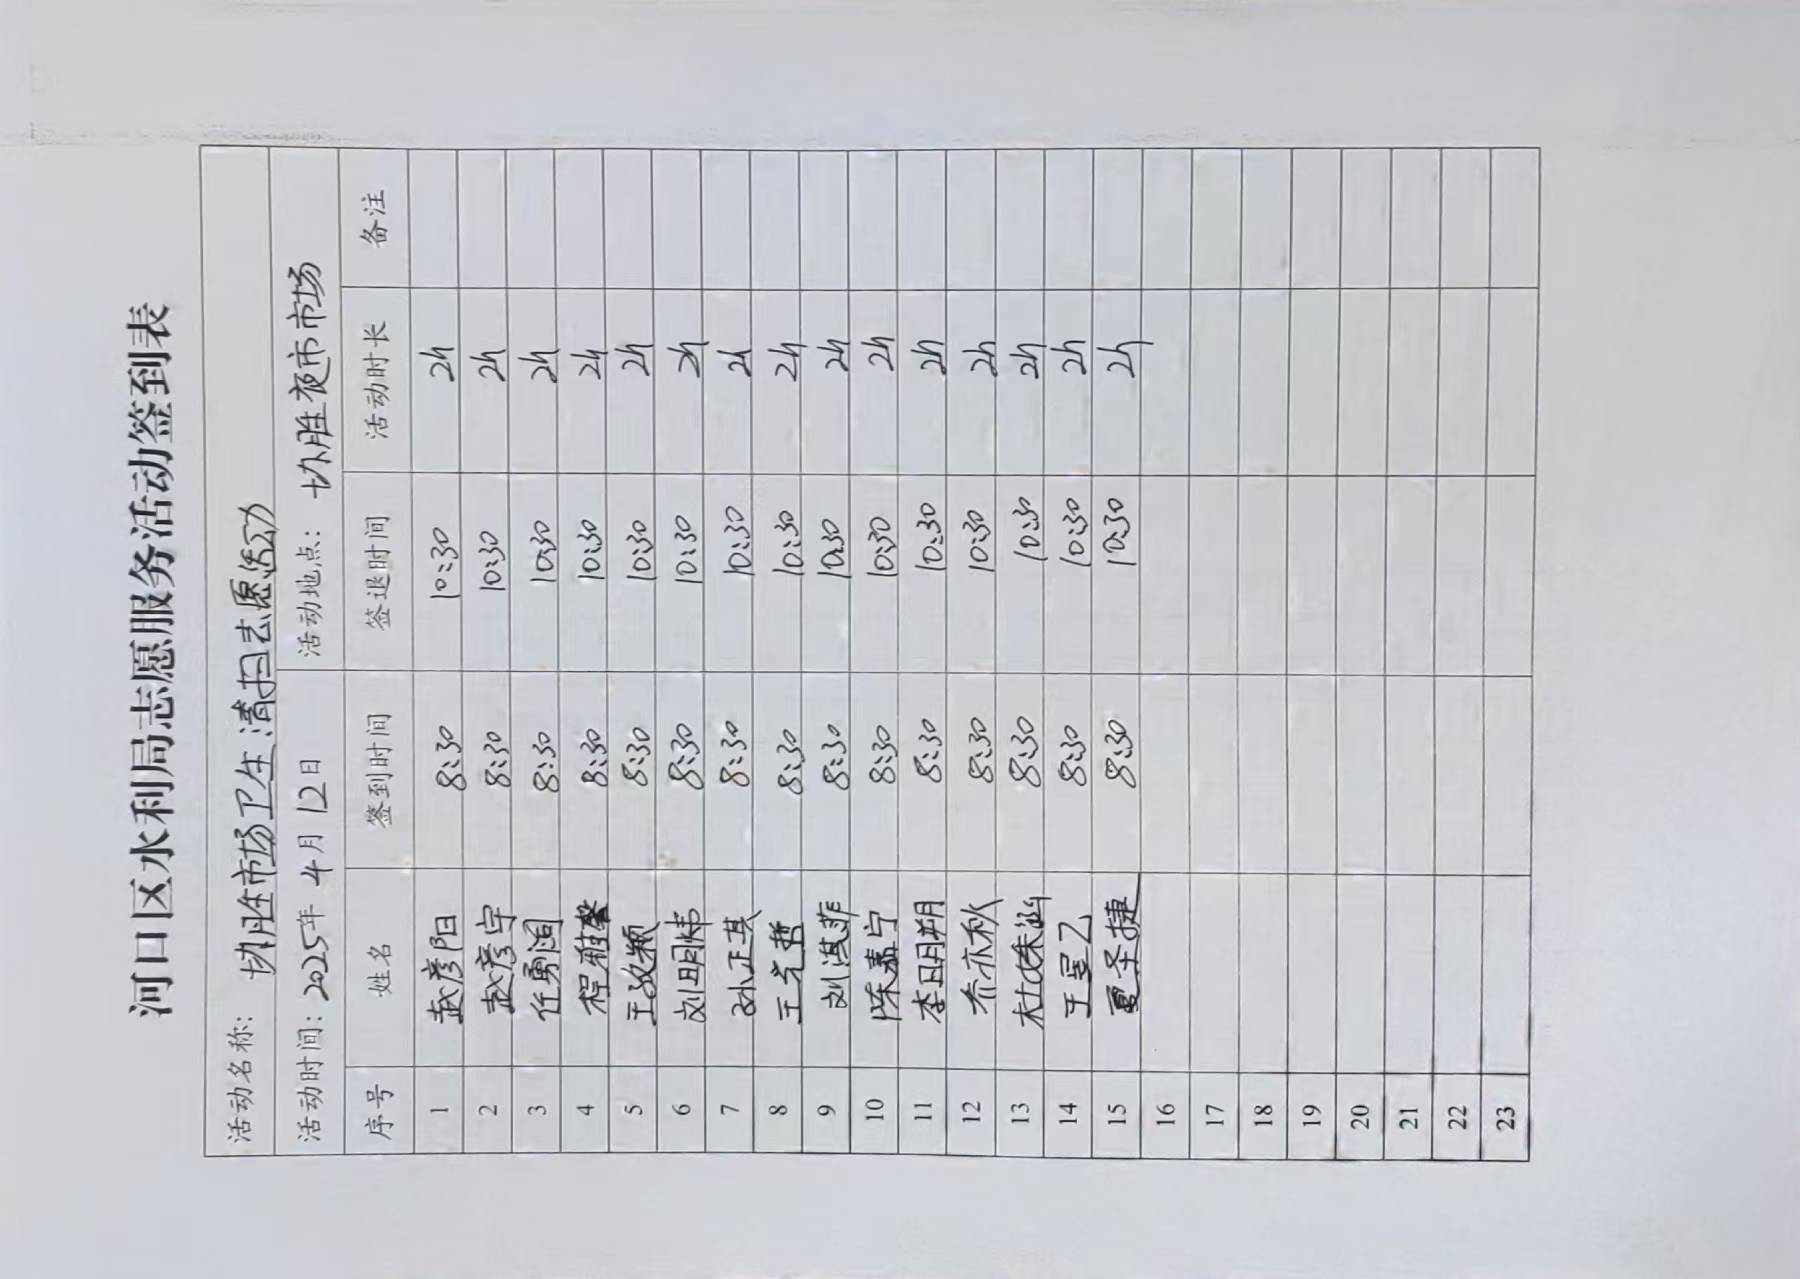 河口区水利局志愿服务活动签到表
活动名称: 协胜市场卫生清扫志愿活动
活动时间: 2025年 4月 12日 活动地点: 协胜夜市市场
序号 姓名 签到时间 签退时间 活动时长 备注
1 赵彦阳 8:30 10:30 2h
2 赵彦宇 8:30 10:30 2h
3 任勇润 8:30 10:30 2h
4 程雅馨 8:30 10:30 2h
5 王政颖 8:30 10:30 2h
6 刘明炜 8:30 10:30 2h
7 孙正其 8:30 10:30 2h
8 王光哲 8:30 10:30 2h
9 刘淇菲 8:30 10:30 2h
10 陈嘉宁 8:30 10:30 2h
11 李明朔 8:30 10:30 2h
12 乔亦秋 8:30 10:30 2h
13 杜姝 8:30 10:30 2h
14 于昱乙 8:30 10:30 2h
15 夏圣捷 8:30 10:30 2h
16
17
18
19
20
21
22
23